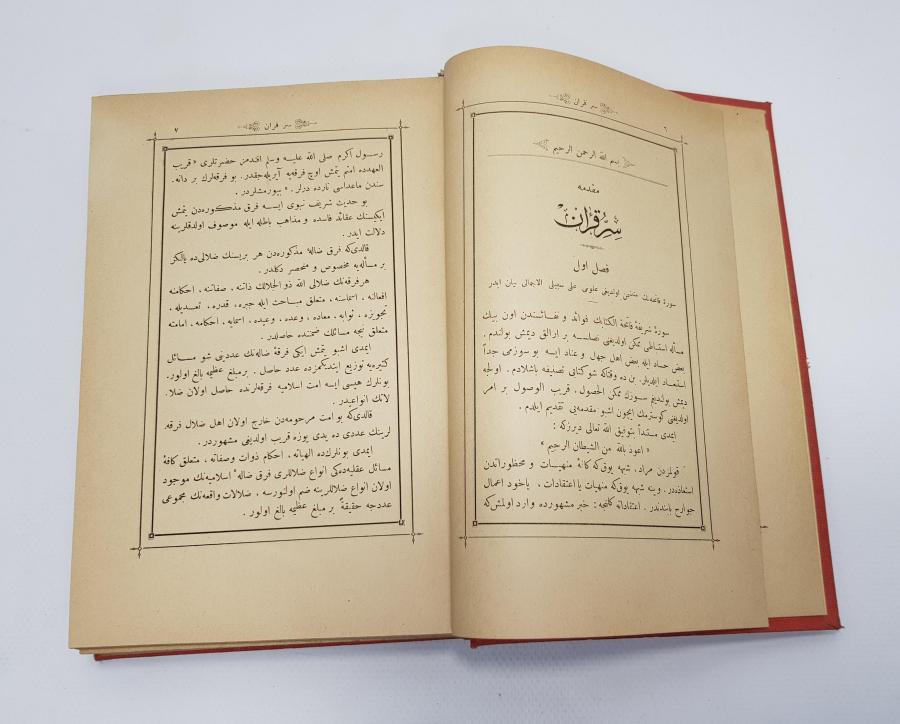 سر قرآن
٦
بسم الله الرحمن الرحيم
مقدمه
سِرِّ قُرْآن
فصل اول
سورۀ فاتحه‌نك متضمن اولديغى علومى على سبيل الاجمالى بيان ايدر
سورۀ شريفۀ فاتحة الكتابك فوائد و نفائسندن اون بيك
مسأله استنباطى ممكن اولديغنى نصلسه بر ارالق ديمش بولندم .
بعض حساد ايله بعض اهل جهل و عناد ايسه بو سوزمى جداً
استبعاد ايتديلر . بن ده وقتاكه شو كتابى تصنيفه باشلادم . اولجه
ديمش بولنديغم سوزك ممكن الحصول ، قريب الوصول بر امر
اولديغنى كوسترمك ايچون اشو مقدمه‌يى تقديم ايلدم .
ايمدى مستنداً بتوفيق الله تعالى ديرزكه :
« اعوذ بالله من الشيطان الرجيم »
قولمزدن مراد ، شبهه يوق كه كافۀ منهيات و محظوراتدن
استعاذه‌در . وينه شبهه يوق كه منهيات يا اعتقادات ، ياخود اعمال
جوارح بابنده‌در . اعتقاداته كلنجه : خبر مشهورده وارد اولمش كه
سر قرآن
٧
رسول اكرم صلى الله عليه وسلم افندمز حضرتلرى « قريب
العهدده امتم يتمش اوچ فرقه‌يه آيريله‌جقدر . بو فرقه‌لرك بر دانه
سندن ماعداسى نارده درلر . » بيورمشلردر .
بو حديث شريف نبوى ايسه فرق مذكوره‌دن يتمش
ايكيسنك عقائد فاسده و مذاهب باطله ايله موصوف اولدقلرينه
دلالت ايدر .
قالدى‌كه فرق ضالۀ مذكوره‌دن هر بريسنك ضلالى‌ده يالكز
بر مسأله‌يه مخصوص و منحصر دكلدر .
هر فرقه‌نك ضلالى الله ذو الجلالك ذاتنه ، صفاتنه ، احكامنه
افعالنه ، اسماسنه ، متعلق مباحث ايله جبره ، قدره ، تعديله ،
تجويزه ، ثوابه ، معاده ، وعده ، وعيده ، اسمايه ، احكامه ، امامته
متعلق نيجه مسائلك ضمننده حاصلدر .
ايمدى اشبو يتمش ايكى فرقۀ ضاله‌نك عددينى شو مسائل
كثيره‌يه توزيع ايتديكمزده عدد حاصل . بر مبلغ عظيمه بالغ اولور .
بونلرك هپسى ايسه امت اسلاميه فرقه‌لرنده حاصل اولان ضلا
لاتك انواعيدر .
قالدى‌كه بو امت مرحومه‌دن خارج اولان اهل ضلال فرقه
لرينك عددى ده يدى يوزه قريب اولديغى مشهوردر .
ايمدى بونلرك‌ده الهياته ، احكام ذوات وصفاته ، متعلق كافۀ
مسائل عقليه‌ده‌كى انواع ضلاللرى فرق ضالۀ اسلاميه‌نك موجود
اولان انواع ضلاللرينه ضم اولنورسه ، ضلالات واقعه‌نك مجموعى
عددجه حقيقةً بر مبلغ عظيمه بالغ اولور .